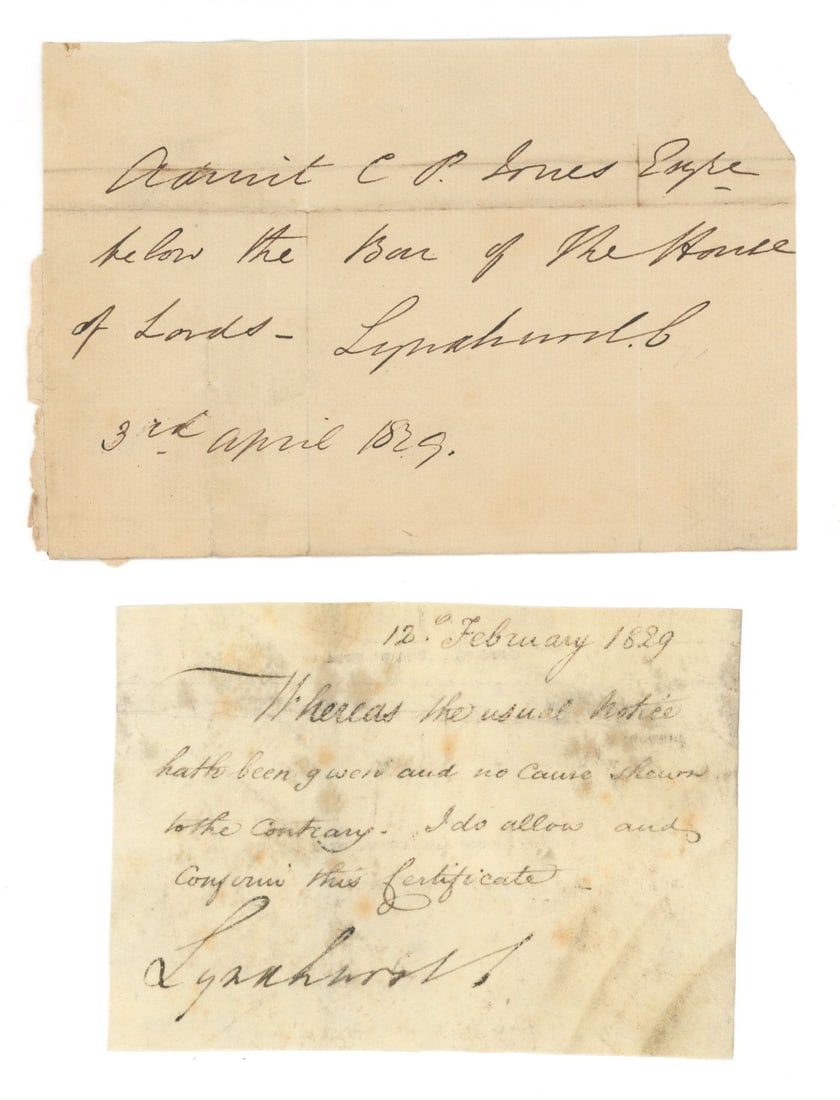 Admit C P. Jones Esqre
below the Bar of the House
of Lords - Lyndhurst. C
3rd April 1829.
12.o February 1829
Whereas the usual Notice
hath been given and no Cause shewn
to the Contrary - I do allow and
Confirm this Certificate
Lyndhurst C